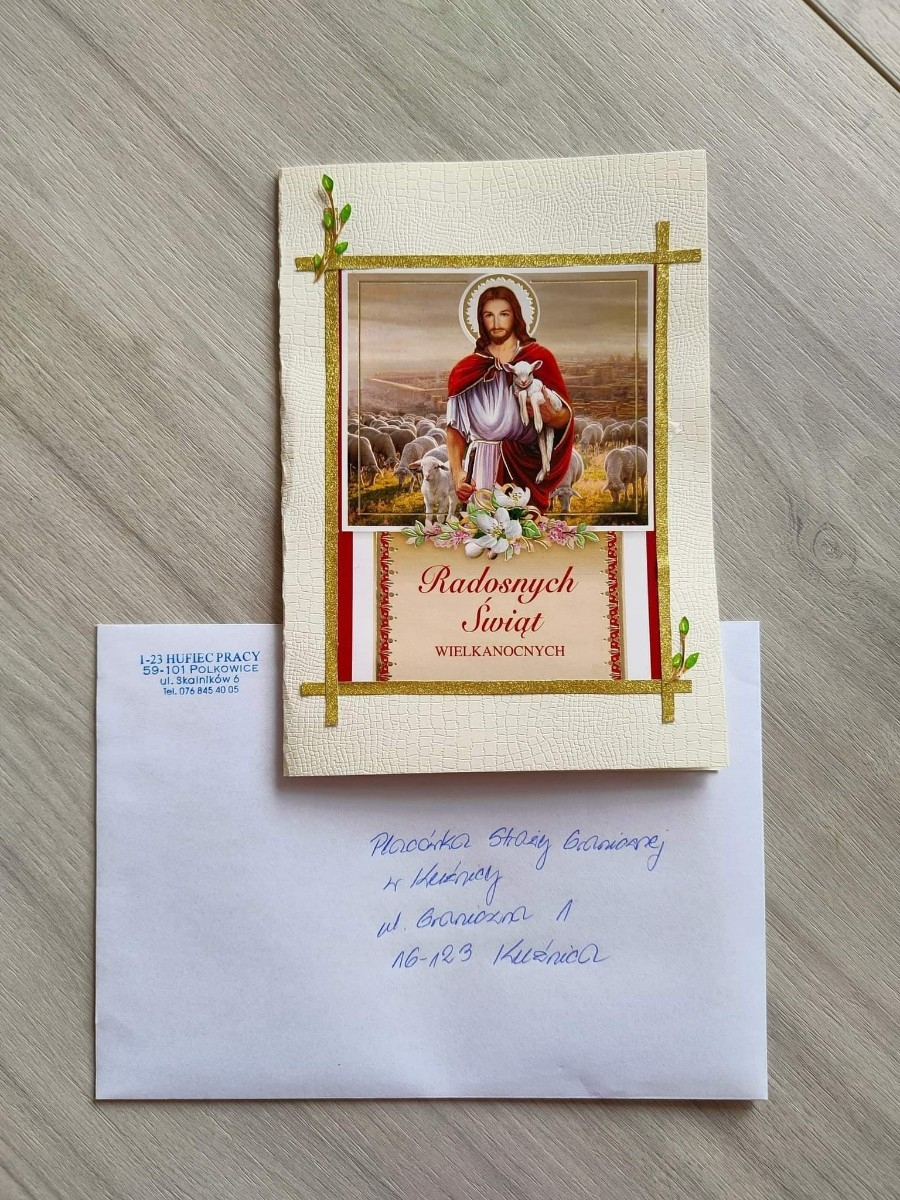 Radosnych
Świąt
WIELKANOCNYCH
1-23 HUFIEC PRACY
59-101 POLKOWICE
ul. Skalników 6
Tel. 076 845 40 05
Placówka Straży Granicznej
w Kuźnicy
ul. Graniczna 1
16-123 Kuźnica